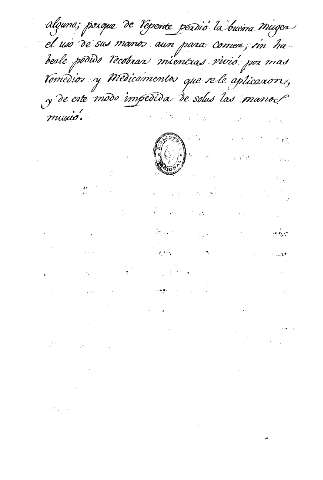 alguno; porque de repente perdió la buena Muger
el uso de sus manos aun para comer, sin ha-
berle podido recobrar mientras vivió por mas
remedios y Medicamentos que se le aplicaron,
y de este modo impedida de solas las manos
murió.